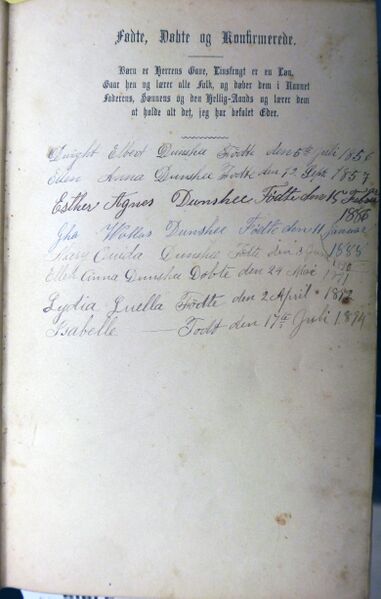 Fødte, Døbte og Konfirmerede.
Børn er Herrens Gave, Livsfrugt er en Løn,
Gaar hen og lærer alle Folk, og døber dem i Navnet
Faderens, Sønnens og den Hellig-Aands og lærer dem
at holde alt det, jeg har befalet Eder.
Dwight Elbert Dunshee Fødte den 5th Juli 1856
Ellen Anna Dunshee Fødte den 12 1857
Esther Agnes Dunshee Fødte den 15
1885
Dunshee Fødte den 11 Januar
Mary Dunshee Føte den
1888
Ellen Anna Dunshee Døbte den 24 Mai
Lydia Luella Fødte den 2 April
Isabelle — Født den 17th Juli 1894